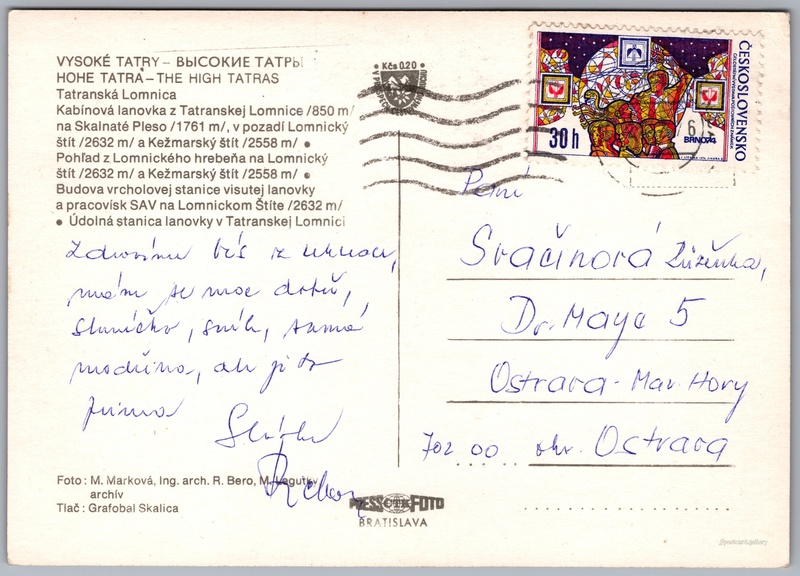 VYSOKÉ TATRY – ВЫСОКИЕ ТАТРЫ
HOHE TATRA – THE HIGH TATRAS
Tatranská Lomnica
Kabínová lanovka z Tatranskej Lomnice /850 m/
na Skalnaté Pleso /1761 m/, v pozadí Lomnický
štít /2632 m/ a Kežmarský štít /2558 m/ •
Pohľad z Lomnického hrebeňa na Lomnický
štít /2632 m/ a Kežmarský štít /2558 m/ •
Budova vrcholovej stanice visutej lanovky
a pracovísk SAV na Lomnickom Štíte /2632 m/
• Údolná stanica lanovky v Tatranskej Lomnici
Kčs 0.20
ČESKOSLOVENSKO
30h
BRNO74
Zdravíme
máme se moc dobře,
sluníčko, sníh, samá
modřina, ale je to
prima
Paní
Svačinová Zuzenka,
Dr. Maye 5
Ostrava - Mar. Hory
702 00 okr. Ostrava
Foto: M. Marková, Ing. arch. R. Bero, M. Legutky
archív
Tlač: Grafobal Skalica
PRESSFOTO
BRATISLAVA